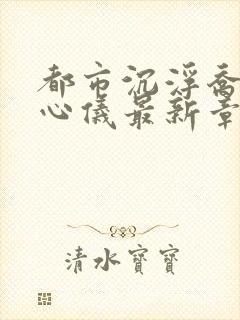 都市沉浮乔
心儀最新章
清水寶寶